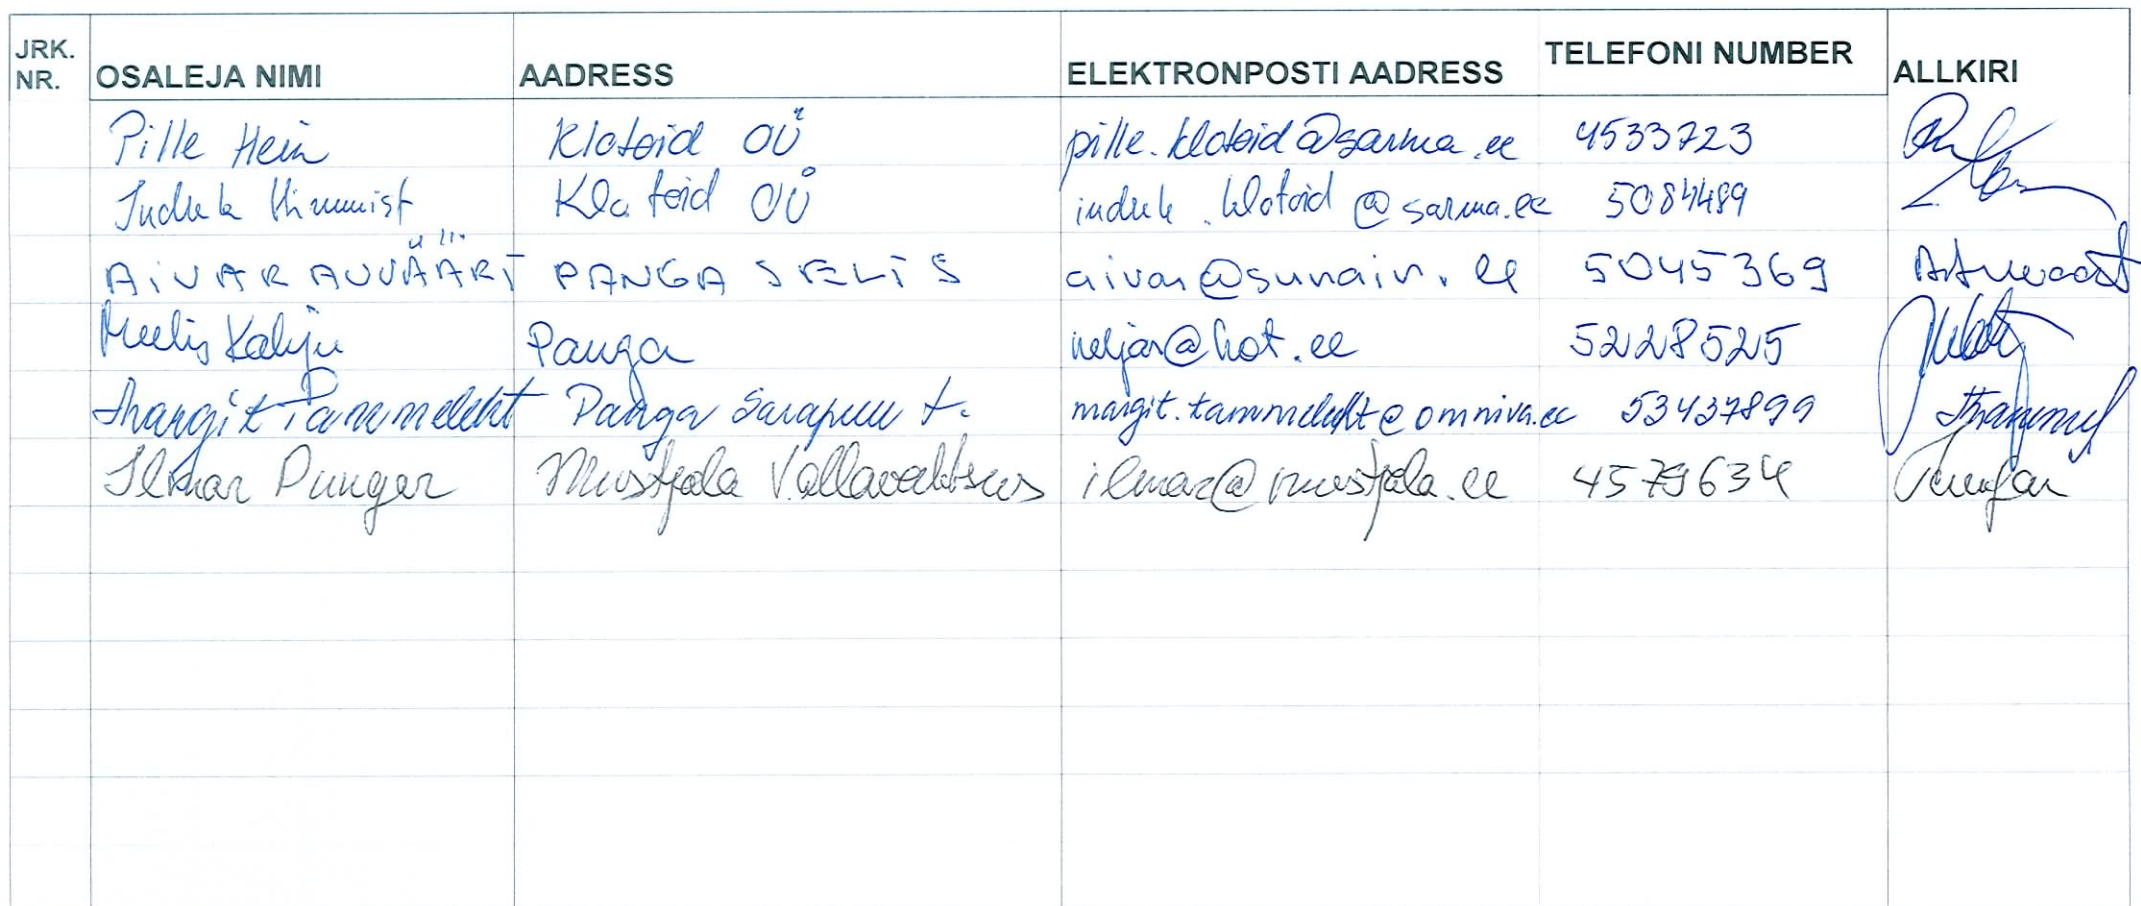 JRK. NR. OSALEJA NIMI AADRESS ELEKTRONPOSTI AADRESS TELEFONI NUMBER ALLKIRI
Pille Hein Klotoid OÜ pille.klotoid@sarma.ee 4533723
Indrek Himmist Klotoid OÜ indrek.klotoid@sarma.ee 5084489
AIVAR AUVÄÄRT PANGA SELTS aivar@sunair.ee 5045369
Meelis Kaliju Panga neljar@hot.ee 5228525
Margit Tammeleht Panga Sarapuu t. margit.tammeleht@omniva.ee 53437899
Ilmar Pungar Mustjala Vallavalitsus ilmar@mustjala.ee 4579634